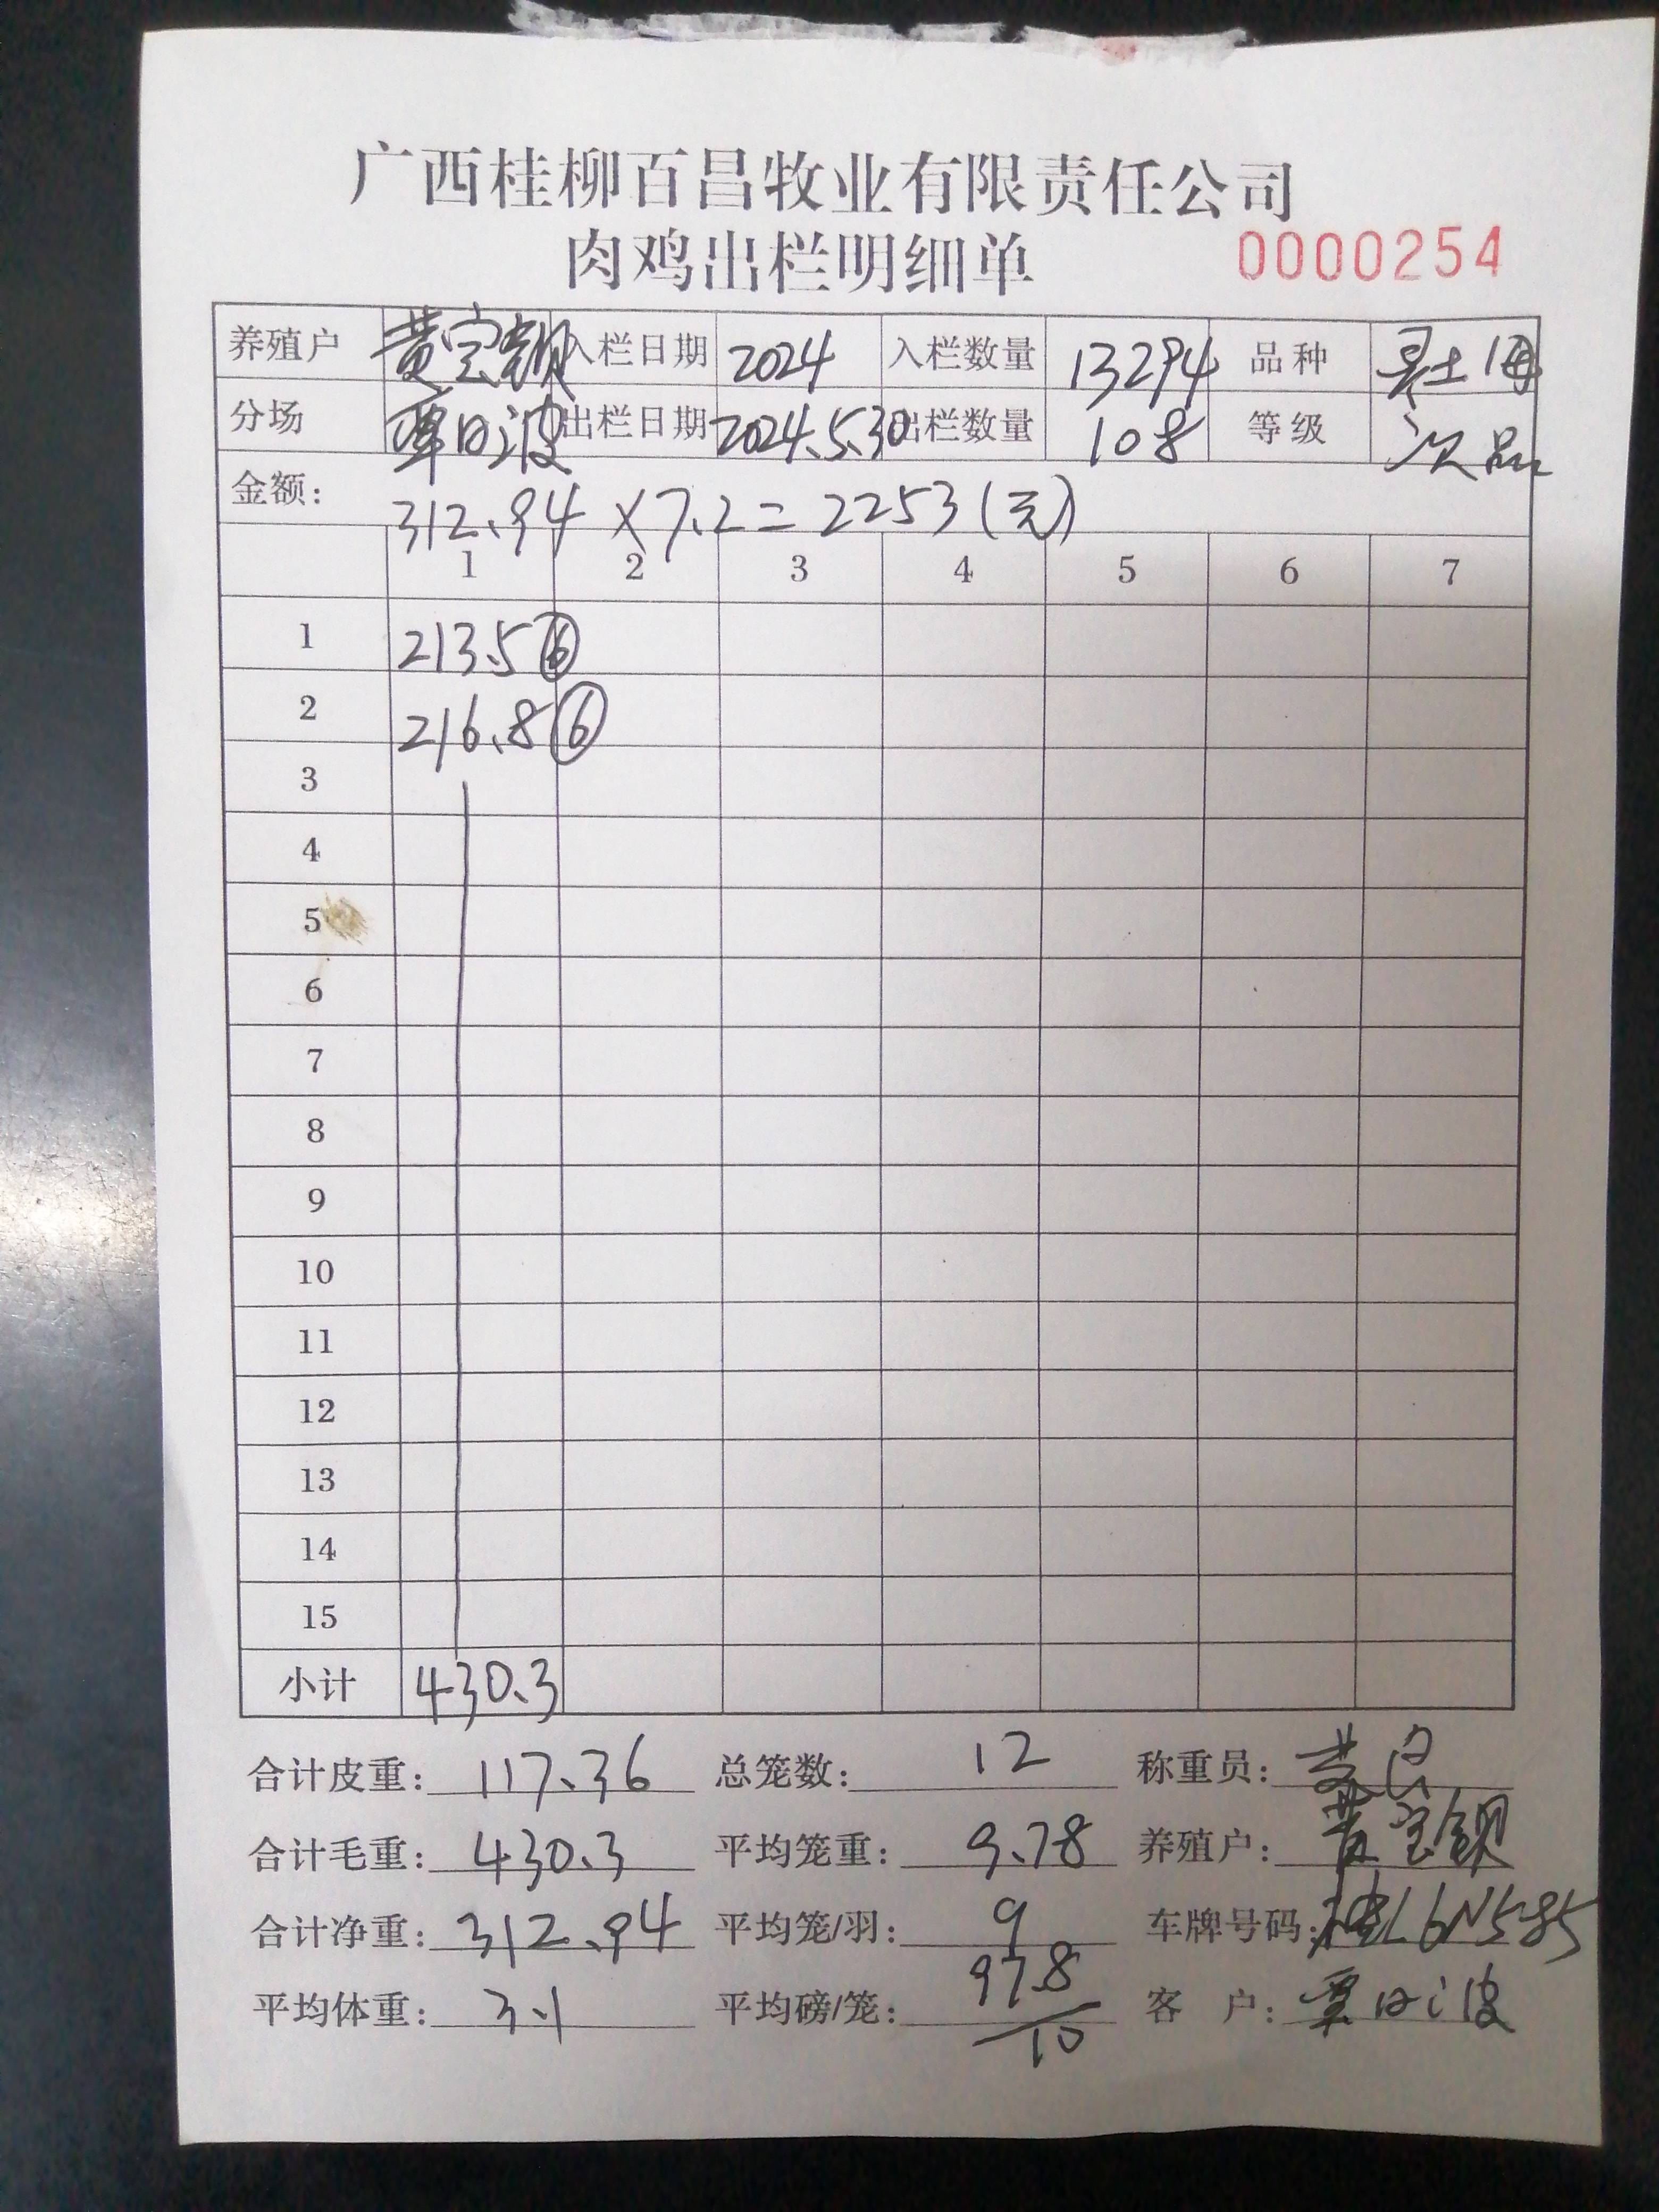 广西桂柳百昌牧业有限责任公司
肉鸡出栏明细单 0000254
养殖户 黄宝钡 入栏日期 2024 入栏数量 13294 品种 土
分场 覃日波 出栏日期 2024.5.30 出栏数量 108 等级 次品
金额: 312.94 ×7.2=2253(元)
1 2 3 4 5 6 7
1 213.5 ⑥
2 216.8 ⑥
3
4
5
6
7
8
9
10
11
12
13
14
15
小计 430.3
合计皮重: 117.36 总笼数: 12 称重员:
合计毛重: 430.3 平均笼重: 9.78 养殖户: 黄宝钡
合计净重: 312.94 平均笼/羽: 9 车牌号码: 桂L6N585
平均体重: 3.1 平均磅/笼: 97.8/10 客 户: 覃日波